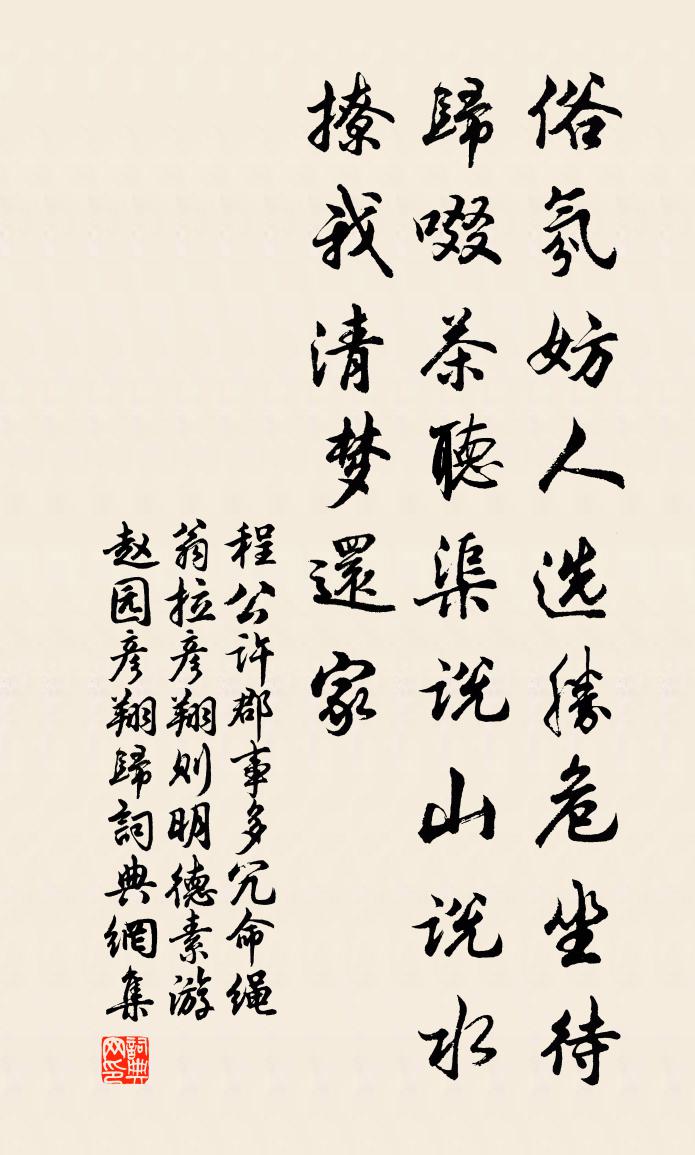 俗氛妨人选勝危坐待
歸啜茶聽渠说山说水
撩我清梦還家
程公许郡事多冗命绳
翁拉彦翔则明德素游
赵园彦翔歸詞典網集
詞典
网印